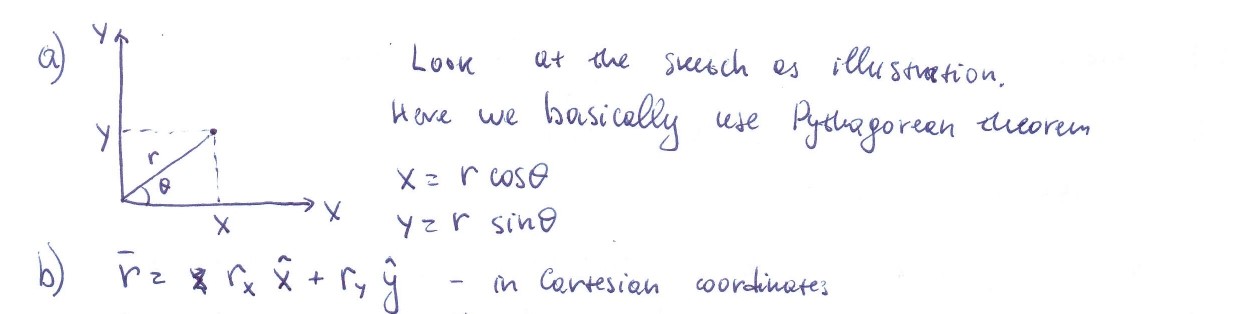 a)
Y
Look at the sketch as illustration.
Y
r
θ
X
X
Here we basically use Pythagorean theorem
x = r cosθ
y = r sinθ
b) r̄ = r_x x̂ + r_y ŷ - in Cartesian coordinates